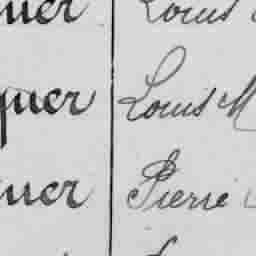 uer Louis
quer Louis M
uer Pierre